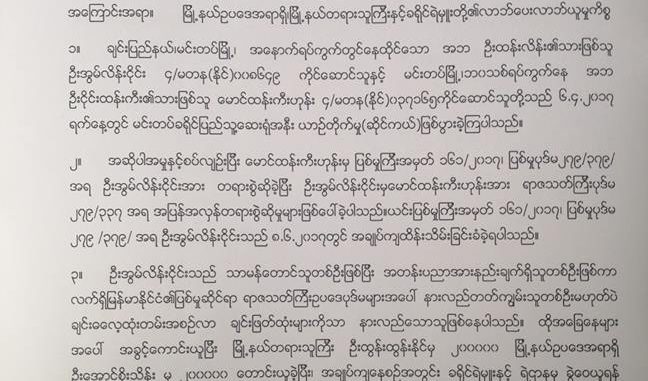 အကြောင်းအရာ။ မြို့နယ်ဥပဒေအရာရှိ၊မြို့နယ်တရားသူကြီးနှင့်ခရိုင်ရဲမှူးတို့၏လာဘ်ပေးလာဘ်ယူမှုကိစ္စ
၁။ ချင်းပြည်နယ်၊မင်းတပ်မြို့၊ အနောက်ရပ်ကွက်တွင်နေထိုင်သော အဘ ဦးထန်းလိန်း၏သားဖြစ်သူ
ဦးအွမ်လိန်းငိုင်း ၄/မတန(နိုင်)၀၀၈၆၄၉ ကိုင်ဆောင်သူနှင့် မင်းတပ်မြို့၊ဘဝသစ်ရပ်ကွက်နေ အဘ
ဦးငိုင်းထန်းကီး၏သားဖြစ်သူ မောင်ထန်းကီးဟုန်း ၄/မတန(နိုင်)၀၃၇၁၆၅ကိုင်ဆောင်သူတို့သည် ၆.၄.၂၀၁၇
ရက်နေ့တွင် မင်းတပ်ခရိုင်ပြည်သူ့ဆေးရုံအနီး ယာဉ်တိုက်မှု(ဆိုင်ကယ်)ဖြစ်ပွားခဲ့ကြပါသည်။
၂။ အဆိုပါအမှုနှင့်စပ်လျဉ်းပြီး မောင်ထန်းကီးဟုန်းမှ ပြစ်မှုကြီးအမှတ် ၁၆၁/၂၀၁၇၊ ပြစ်မှုပုဒ်မ၂၇၉/၃၇၉/
အရ ဦးအွမ်လိန်းငိုင်းအား တရားစွဲဆိုခဲ့ပြီး ဦးအွမ်လိန်းငိုင်းမှမောင်ထန်းကီးဟုန်းအား ရာဇသတ်ကြီးပုဒ်မ
၂၇၉/၃၃၇ အရ အပြန်အလှန်တရားစွဲဆိုမှုများဖြစ်ပေါ်ခဲ့ပါသည်။ယင်းပြစ်မှုကြီးအမှတ် ၁၆၁/၂၀၁၇၊ ပြစ်မှုပုဒ်မ
၂၇၉ /၃၇၉/ အရ ဦးအွမ်လိန်းငိုင်းသည် ၈.၆.၂၀၁၇တွင် အချုပ်ကျထိန်းသိမ်းခြင်းခံခဲ့ရပါသည်။
၃။ ဦးအွမ်လိန်းငိုင်းသည် သာမန်တောင်သူတစ်ဦးဖြစ်ပြီး အတန်းပညာအားနည်းချက်ရှိသူတစ်ဦးဖြစ်ကာ
လက်ရှိမြန်မာနိုင်ငံ၏ပြစ်မှုဆိုင်ရာ ရာဇသတ်ကြီးဥပဒေပုဒ်မများအပေါ် နားလည်တတ်ကျွမ်းသူတစ်ဦးမဟုတ်ပဲ
ချင်းဓလေ့ထုံးတမ်းအစဉ်လာ ချင်းဖြတ်ထုံးများကိုသာ နားလည်သောသူဖြစ်နေပါသည်။ ထိုအခြေနေများ
အပေါ် အခွင့်ကောင်းယူပြီး မြို့နယ်တရားသူကြီး ဦးထွန်းထွန်းနိုင်မှ ၂၀၀၀၀၀ မြို့နယ်ဥပဒေအရာရှိ
ဦးအောင်စိုးသိန်း မှ ၂၀၀၀၀၀ တောင်းယူခဲ့ပြီး၊ အချုပ်ကျနေစဉ်အတွင်း ခရိုင်ရဲမှူးနှင့် ရဲဌာနမှ ခွဲဝေယူရန်